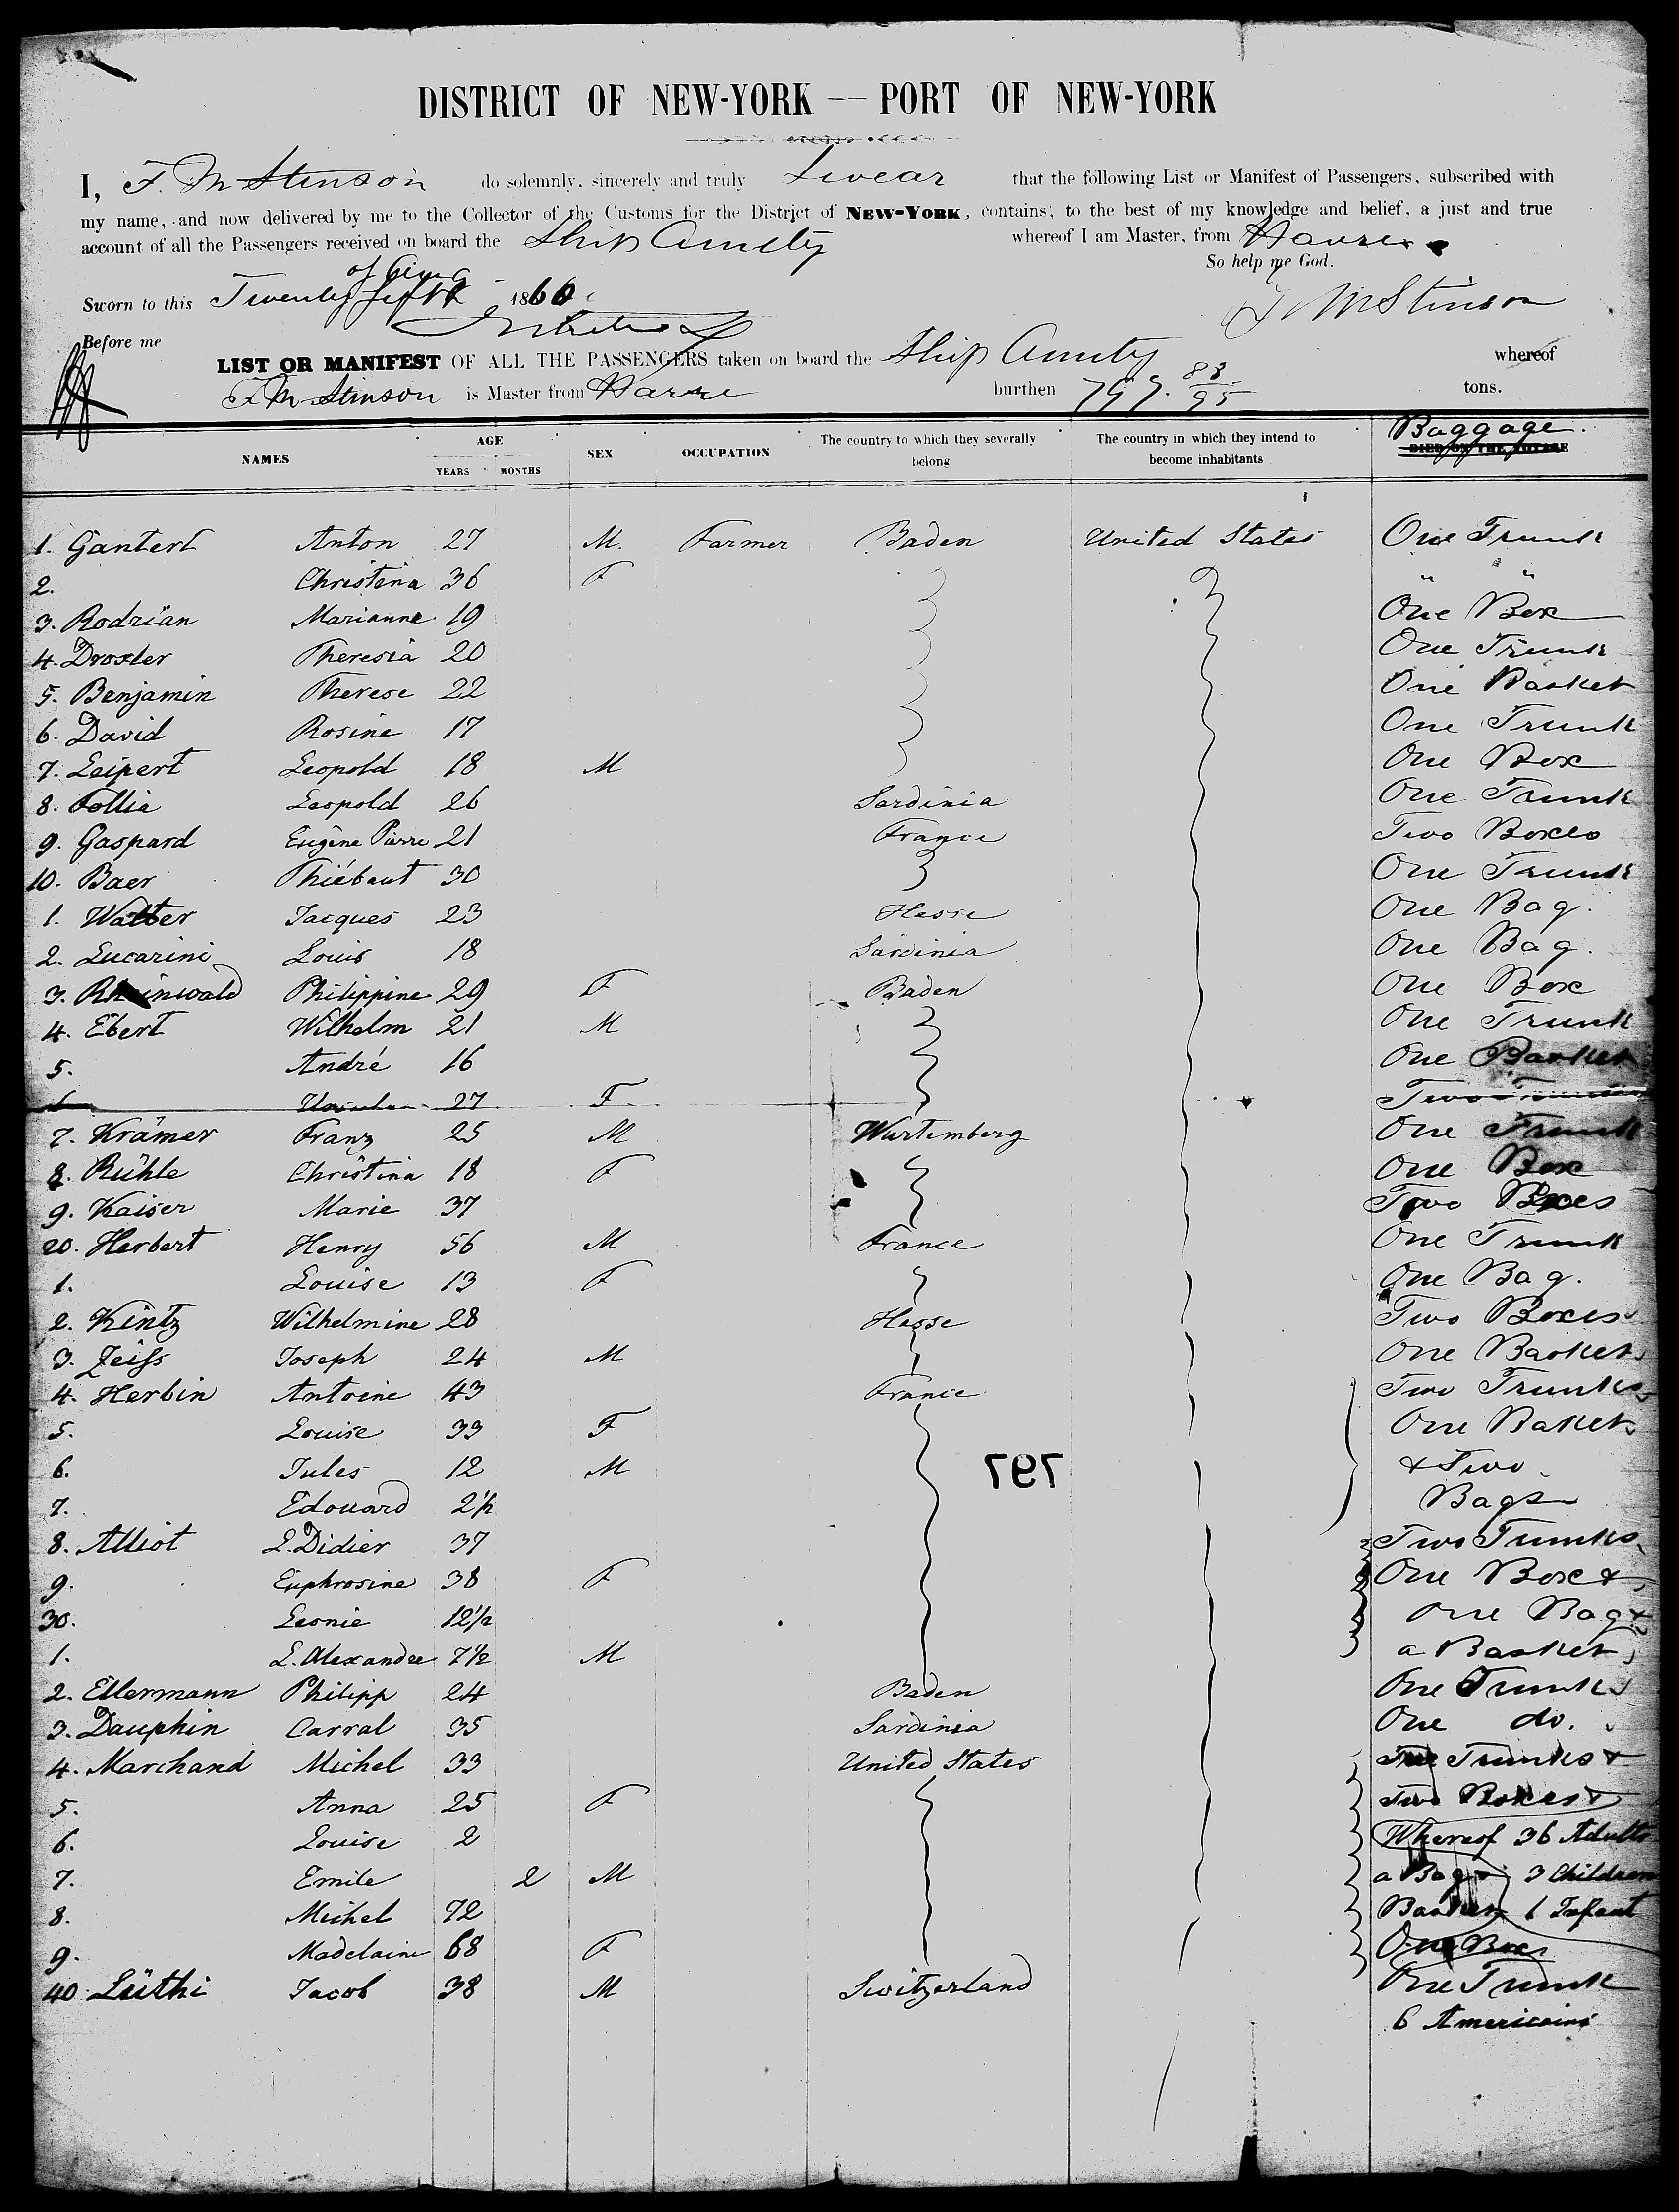 DISTRICT OF NEW-YORK — PORT OF NEW-YORK
I, F. M Stinson do solemnly, sincerely and truly Swear that the following List or Manifest of Passengers, subscribed with
my name, and now delivered by me to the Collector of the Customs for the District of NEW-YORK, contains, to the best of my knowledge and belief, a just and true
account of all the Passengers received on board the Ship Amity whereof I am Master, from Havre
So help me God.
Sworn to this Twenty fifth 1860 F M Stinson
Before me
LIST OR MANIFEST OF ALL THE PASSENGERS taken on board the Ship Amity whereof
F. M Stinson is Master from Havre burthen 797. 83/95 tons.
NAMES AGE YEARS MONTHS SEX OCCUPATION The country to which they severally belong The country in which they intend to become inhabitants Baggage DIED ON THE VOYAGE
1. Gantert Anton 27 M. Farmer Baden United States One Trunk
2. Christina 36 F " "
3. Rodrian Marianne 19 One Box
4. Droxler Theresia 20 One Trunk
5. Benjamin Therese 22 One Basket
6. David Rosine 17 One Trunk
7. Leipert Leopold 18 M One Box
8. Follia Leopold 26 Sardinia One Trunk
9. Gaspard Eugène Pierre 21 France Two Boxes
10. Baer Thiébaut 30 One Trunk
1. Walter Jacques 23 Hesse One Bag.
2. Lucarini Louis 18 Sardinia One Bag.
3. Rheinwald Philippine 29 F Baden One Box
4. Ebert Wilhelm 21 M One Trunk
5. André 16 One Basket
6 Ursula 27 F Two Trunks
7. Krämer Franz 25 M Wurtemberg One Trunk
8. Rühle Christina 18 F One Box
9. Kaiser Marie 37 Two Boxes
20. Herbert Henry 56 M France One Trunk
1. Louise 13 F One Bag.
2. Kintz Wilhelmine 28 Hesse Two Boxes
3. Zeiss Joseph 24 M One Basket
4. Herbin Antoine 43 France Two Trunks
5. Louise 33 F One Basket
6. Jules 12 M & Two
797
7. Edouard 2½ Bags
8. Alliot L. Didier 37 Two Trunks
9. Euphrosine 38 F One Box &
30. Leonie 12½ One Bag &
1. L. Alexandre 7½ M a Basket
2. Ellermann Philipp 24 Baden One Trunk
3. Dauphin Carral 35 Sardinia One do.
4. Marchand Michel 33 United States Trunks &
5. Anna 25 F Two Boxes &
6. Louise 2 Whereof 36 Adults
7. Emile 2 M a Bag 3 Children
8. Michel 72 Basket 1 Infant
9. Madelaine 68 F One Box
40. Lüthi Jacob 38 M Switzerland One Trunk
6 Americains